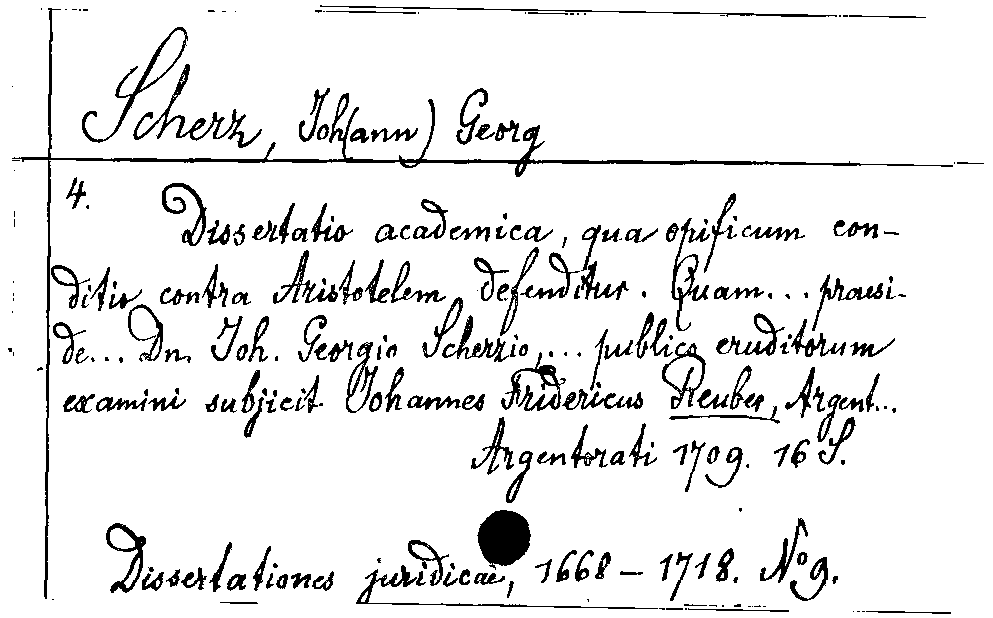 Scherz, Joh(ann) Georg
4.
Dissertatio academica, qua opificum con-
ditio contra Aristotelem defenditur. Quam... praesi-
de... Dn. Joh. Georgio Scherzio,... publico eruditorum
examini subjicit Johannes Fridericus Reuber, Argent...
Argentorati 1709. 16 S.
Dissertationes juridicae, 1668 - 1718. No 9.